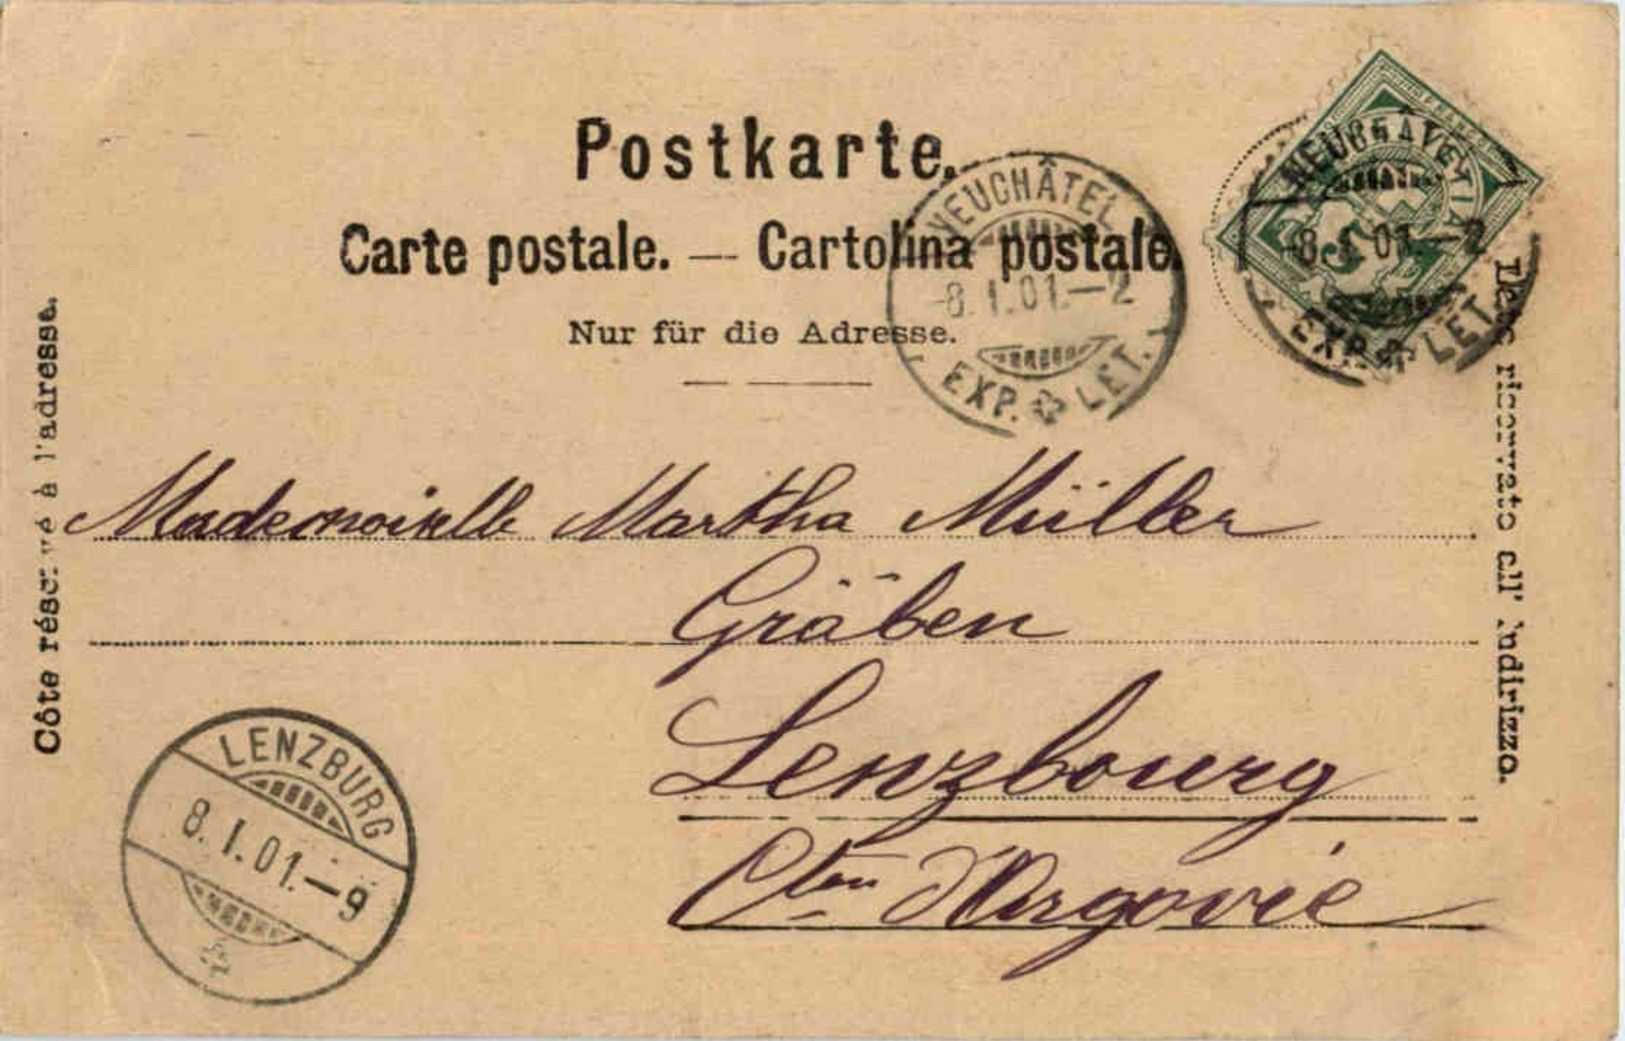 Postkarte.
Carte postale. — Cartolina postale.
Nur für die Adresse.
NEUCHÂTEL
-8.I.01.—2
EXP. LET.
NEUCHÂTEL
-8.I.01.—2
EXP. LET.
HELVETIA
Côte réservé à l'adresse.
Lato riservato all' indirizzo.
Mademoiselle Martha Müller
Gräben
Lenzbourg
Cton d'Argovie
LENZBURG
8.I.01.—9